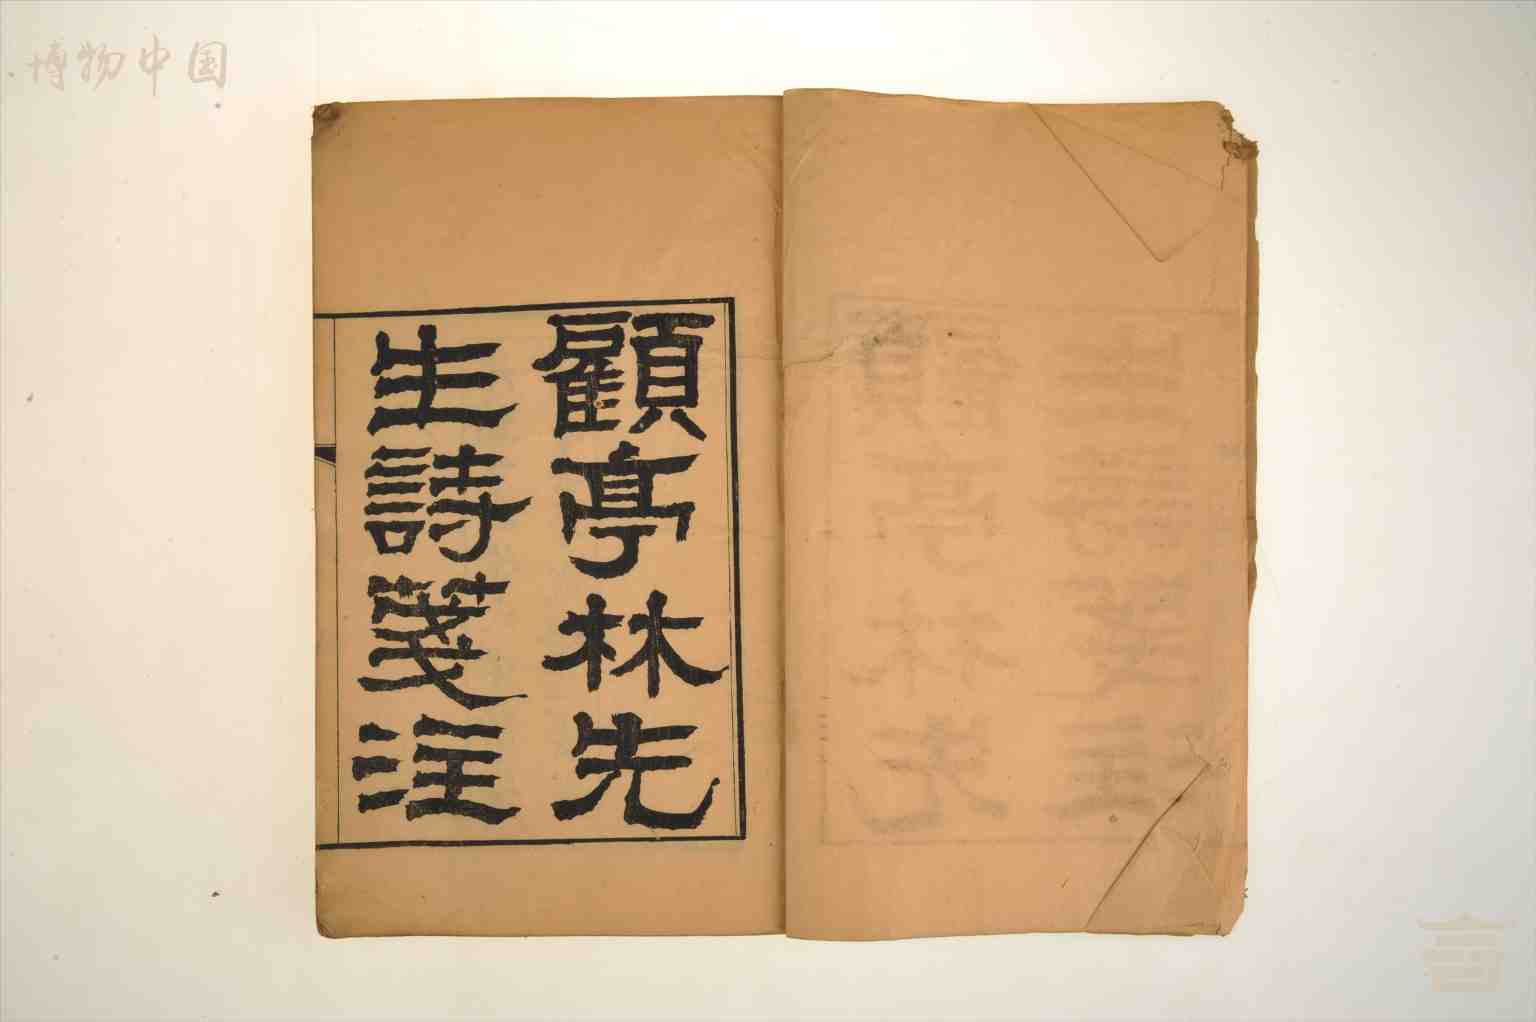 博物中国
顧亭林先
生詩箋注